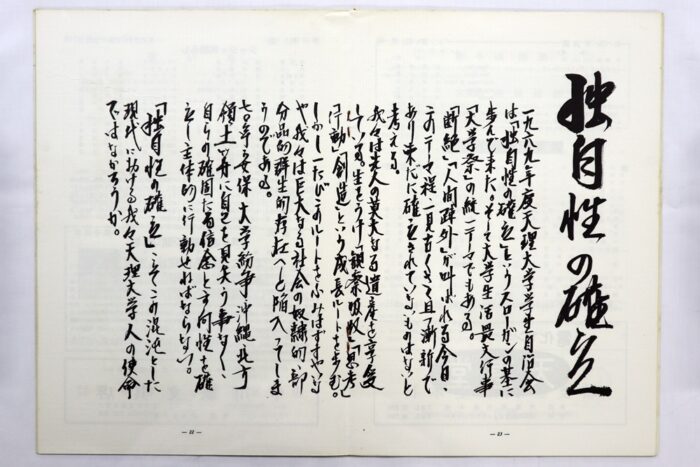 独自性の確立
一九六九年度天理大学学生自治会
は「独自性の確立」というスローガンの基に
歩んで来た。そして大学生活最大行事
「大学祭」の統一テーマでもある。
「断絶」「人間疎外」が叫ばれる今日、
このテーマ程、一見古くさく且つ漸新で
あり未だに確立されていないものはないと
考える。
我々は先人の莫大なる遺産を享受
している。生をうけ「観察」「吸収」「思考」
「行動」「創造」という成長ルートを歩む。
しかし一たびこのルートをふみはずすやいな
や我々は巨大なる社会の奴隷的、部
分品的群生的存在へと陥入ってしま
うのである。
七〇年安保、大学紛争、沖縄、北方
領土、等に自己を見失う事なく、
自らの確固たる信念と方向性を確
立し主体的に行動せねばならない。
「独自性の確立」こそこの混沌とした
現代における我々天理大学人の使命
ではなかろうか。
— 22 —
— 23 —